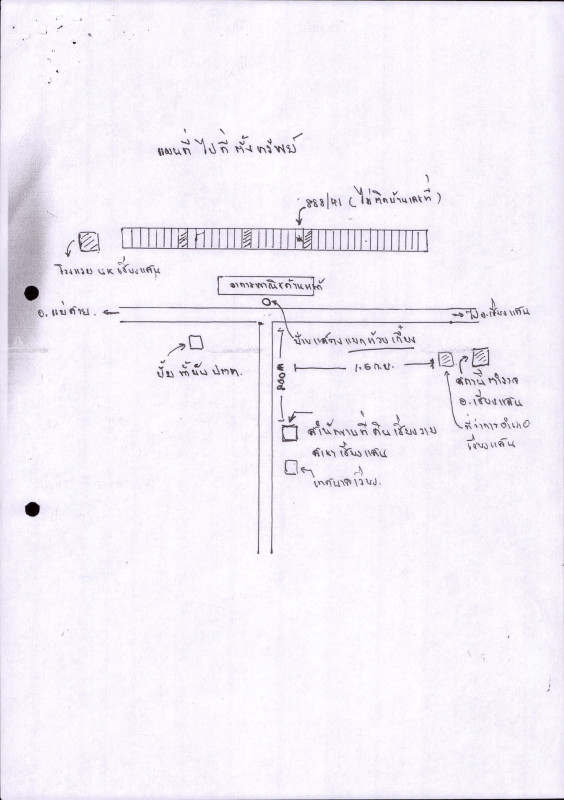 แผนที่ ไปที่ ตั้งทรัพย์
888/41 (ไม่ติดบ้านเลขที่)
โรงแรม เชียงแสน
อาคารพาณิชย์
อ. แม่สาย.
ไป อ.เชียงแสน
ป้าย แสดง แยกห้วยเกี๋ยง
ปั๊ม น้ำมัน ปตท.
200 ม
1.5 ก.ม.
สถานีตำรวจ
อ. เชียงแสน
ที่ว่าการอำเภอ
เชียงแสน
สำนักงานที่ดิน เชียงราย
สาขา เชียงแสน
เทศบาลเวียง.